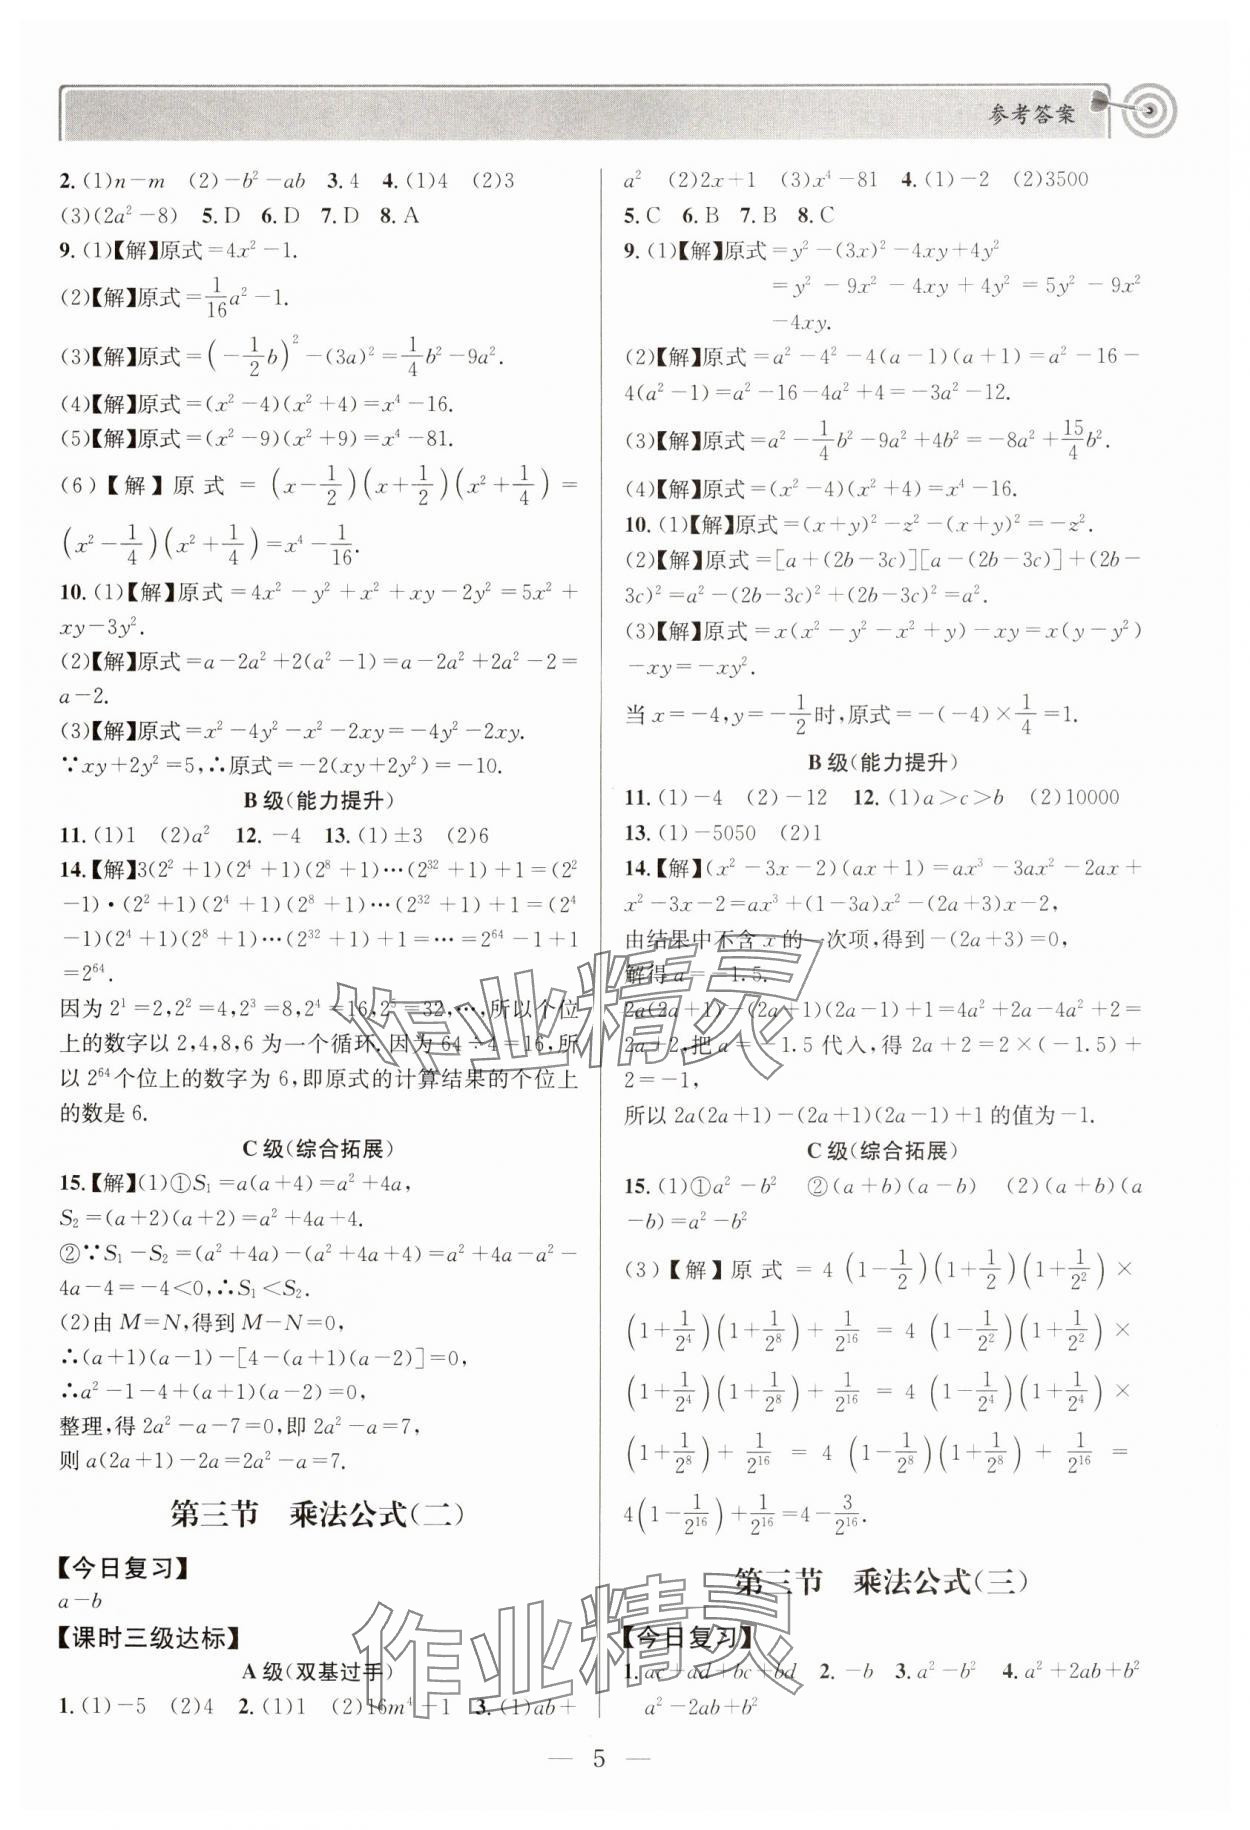 参考答案
2. (1)n－m　(2)－b²－ab　3. 4　4. (1)4　(2)3
(3)(2a²－8)　5. D　6. D　7. D　8. A
9. (1)【解】原式＝4x²－1.
(2)【解】原式＝1/16a²－1.
(3)【解】原式＝(－1/2b)²－(3a)²＝1/4b²－9a².
(4)【解】原式＝(x²－4)(x²＋4)＝x⁴－16.
(5)【解】原式＝(x²－9)(x²＋9)＝x⁴－81.
(6)【解】原式＝(x－1/2)(x＋1/2)(x²＋1/4)＝
(x²－1/4)(x²＋1/4)＝x⁴－1/16.
10. (1)【解】原式＝4x²－y²＋x²＋xy－2y²＝5x²＋
xy－3y².
(2)【解】原式＝a－2a²＋2(a²－1)＝a－2a²＋2a²－2＝
a－2.
(3)【解】原式＝x²－4y²－x²－2xy＝－4y²－2xy.
∵xy＋2y²＝5,∴原式＝－2(xy＋2y²)＝－10.
B 级(能力提升)
11. (1)1　(2)a²　12. －4　13. (1)±3　(2)6
14.【解】3(2²＋1)(2⁴＋1)(2⁸＋1)…(2³²＋1)＋1＝(2²
－1)·(2²＋1)(2⁴＋1)(2⁸＋1)…(2³²＋1)＋1＝(2⁴
－1)(2⁴＋1)(2⁸＋1)…(2³²＋1)＋1＝…＝2⁶⁴－1＋1
＝2⁶⁴.
因为 2¹＝2,2²＝4,2³＝8,2⁴＝16,2⁵＝32,…,所以个位
上的数字以 2,4,8,6 为一个循环. 因为 64÷4＝16,所
以 2⁶⁴个位上的数字为 6,即原式的计算结果的个位上
的数是 6.
C 级(综合拓展)
15.【解】(1)①S₁＝a(a＋4)＝a²＋4a,
S₂＝(a＋2)(a＋2)＝a²＋4a＋4.
②∵S₁－S₂＝(a²＋4a)－(a²＋4a＋4)＝a²＋4a－a²－
4a－4＝－4＜0,∴S₁＜S₂.
(2)由 M＝N,得到 M－N＝0,
∴(a＋1)(a－1)－[4－(a＋1)(a－2)]＝0,
∴a²－1－4＋(a＋1)(a－2)＝0,
整理,得 2a²－a－7＝0,即 2a²－a＝7,
则 a(2a＋1)－2a＝2a²－a＝7.
第三节　乘法公式(二)
【今日复习】
a－b
【课时三级达标】
A 级(双基过手)
1. (1)－5　(2)4　2. (1)1　(2)16m⁴－1　3. (1)ab＋
a²　(2)2x＋1　(3)x⁴－81　4. (1)－2　(2)3500
5. C　6. B　7. B　8. C
9. (1)【解】原式＝y²－(3x)²－4xy＋4y²
＝y²－9x²－4xy＋4y²＝5y²－9x²
－4xy.
(2)【解】原式＝a²－4²－4(a－1)(a＋1)＝a²－16－
4(a²－1)＝a²－16－4a²＋4＝－3a²－12.
(3)【解】原式＝a²－1/4b²－9a²＋4b²＝－8a²＋15/4b².
(4)【解】原式＝(x²－4)(x²＋4)＝x⁴－16.
10. (1)【解】原式＝(x＋y)²－z²－(x＋y)²＝－z².
(2)【解】原式＝[a＋(2b－3c)][a－(2b－3c)]＋(2b－
3c)²＝a²－(2b－3c)²＋(2b－3c)²＝a².
(3)【解】原式＝x(x²－y²－x²＋y)－xy＝x(y－y²)
－xy＝－xy².
当 x＝－4,y＝－1/2时,原式＝－(－4)×1/4＝1.
B 级(能力提升)
11. (1)－4　(2)－12　12. (1)a＞c＞b　(2)10000
13. (1)－5050　(2)1
14.【解】(x²－3x－2)(ax＋1)＝ax³－3ax²－2ax＋
x²－3x－2＝ax³＋(1－3a)x²－(2a＋3)x－2,
由结果中不含 x 的一次项,得到－(2a＋3)＝0,
解得 a＝－1.5.
2a(2a＋1)－(2a＋1)(2a－1)＋1＝4a²＋2a－4a²＋2＝
2a＋2,把 a＝－1.5 代入,得 2a＋2＝2×(－1.5)＋
2＝－1,
所以 2a(2a＋1)－(2a＋1)(2a－1)＋1 的值为－1.
C 级(综合拓展)
15. (1)①a²－b²　②(a＋b)(a－b)　(2)(a＋b)(a
－b)＝a²－b²
(3)【解】原式＝4(1－1/2)(1＋1/2)(1＋1/2²)×
(1＋1/2⁴)(1＋1/2⁸)＋1/2¹⁶＝4(1－1/2²)(1＋1/2²)×
(1＋1/2⁴)(1＋1/2⁸)＋1/2¹⁶＝4(1－1/2⁴)(1＋1/2⁴)×
(1＋1/2⁸)＋1/2¹⁶＝4(1－1/2⁸)(1＋1/2⁸)＋1/2¹⁶＝
4(1－1/2¹⁶)＋1/2¹⁶＝4－3/2¹⁶.
第三节　乘法公式(三)
【今日复习】
1. ac＋ad＋bc＋bd　2. －b　3. a²－b²　4. a²＋2ab＋b²
a²－2ab＋b²
作业精灵
作业精灵
— 5 —